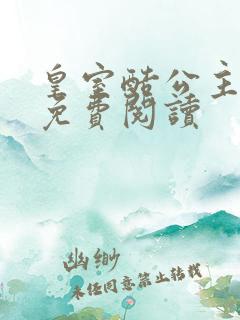 皇室酷公主
免費閱讀
幽缈
未经同意禁止转载